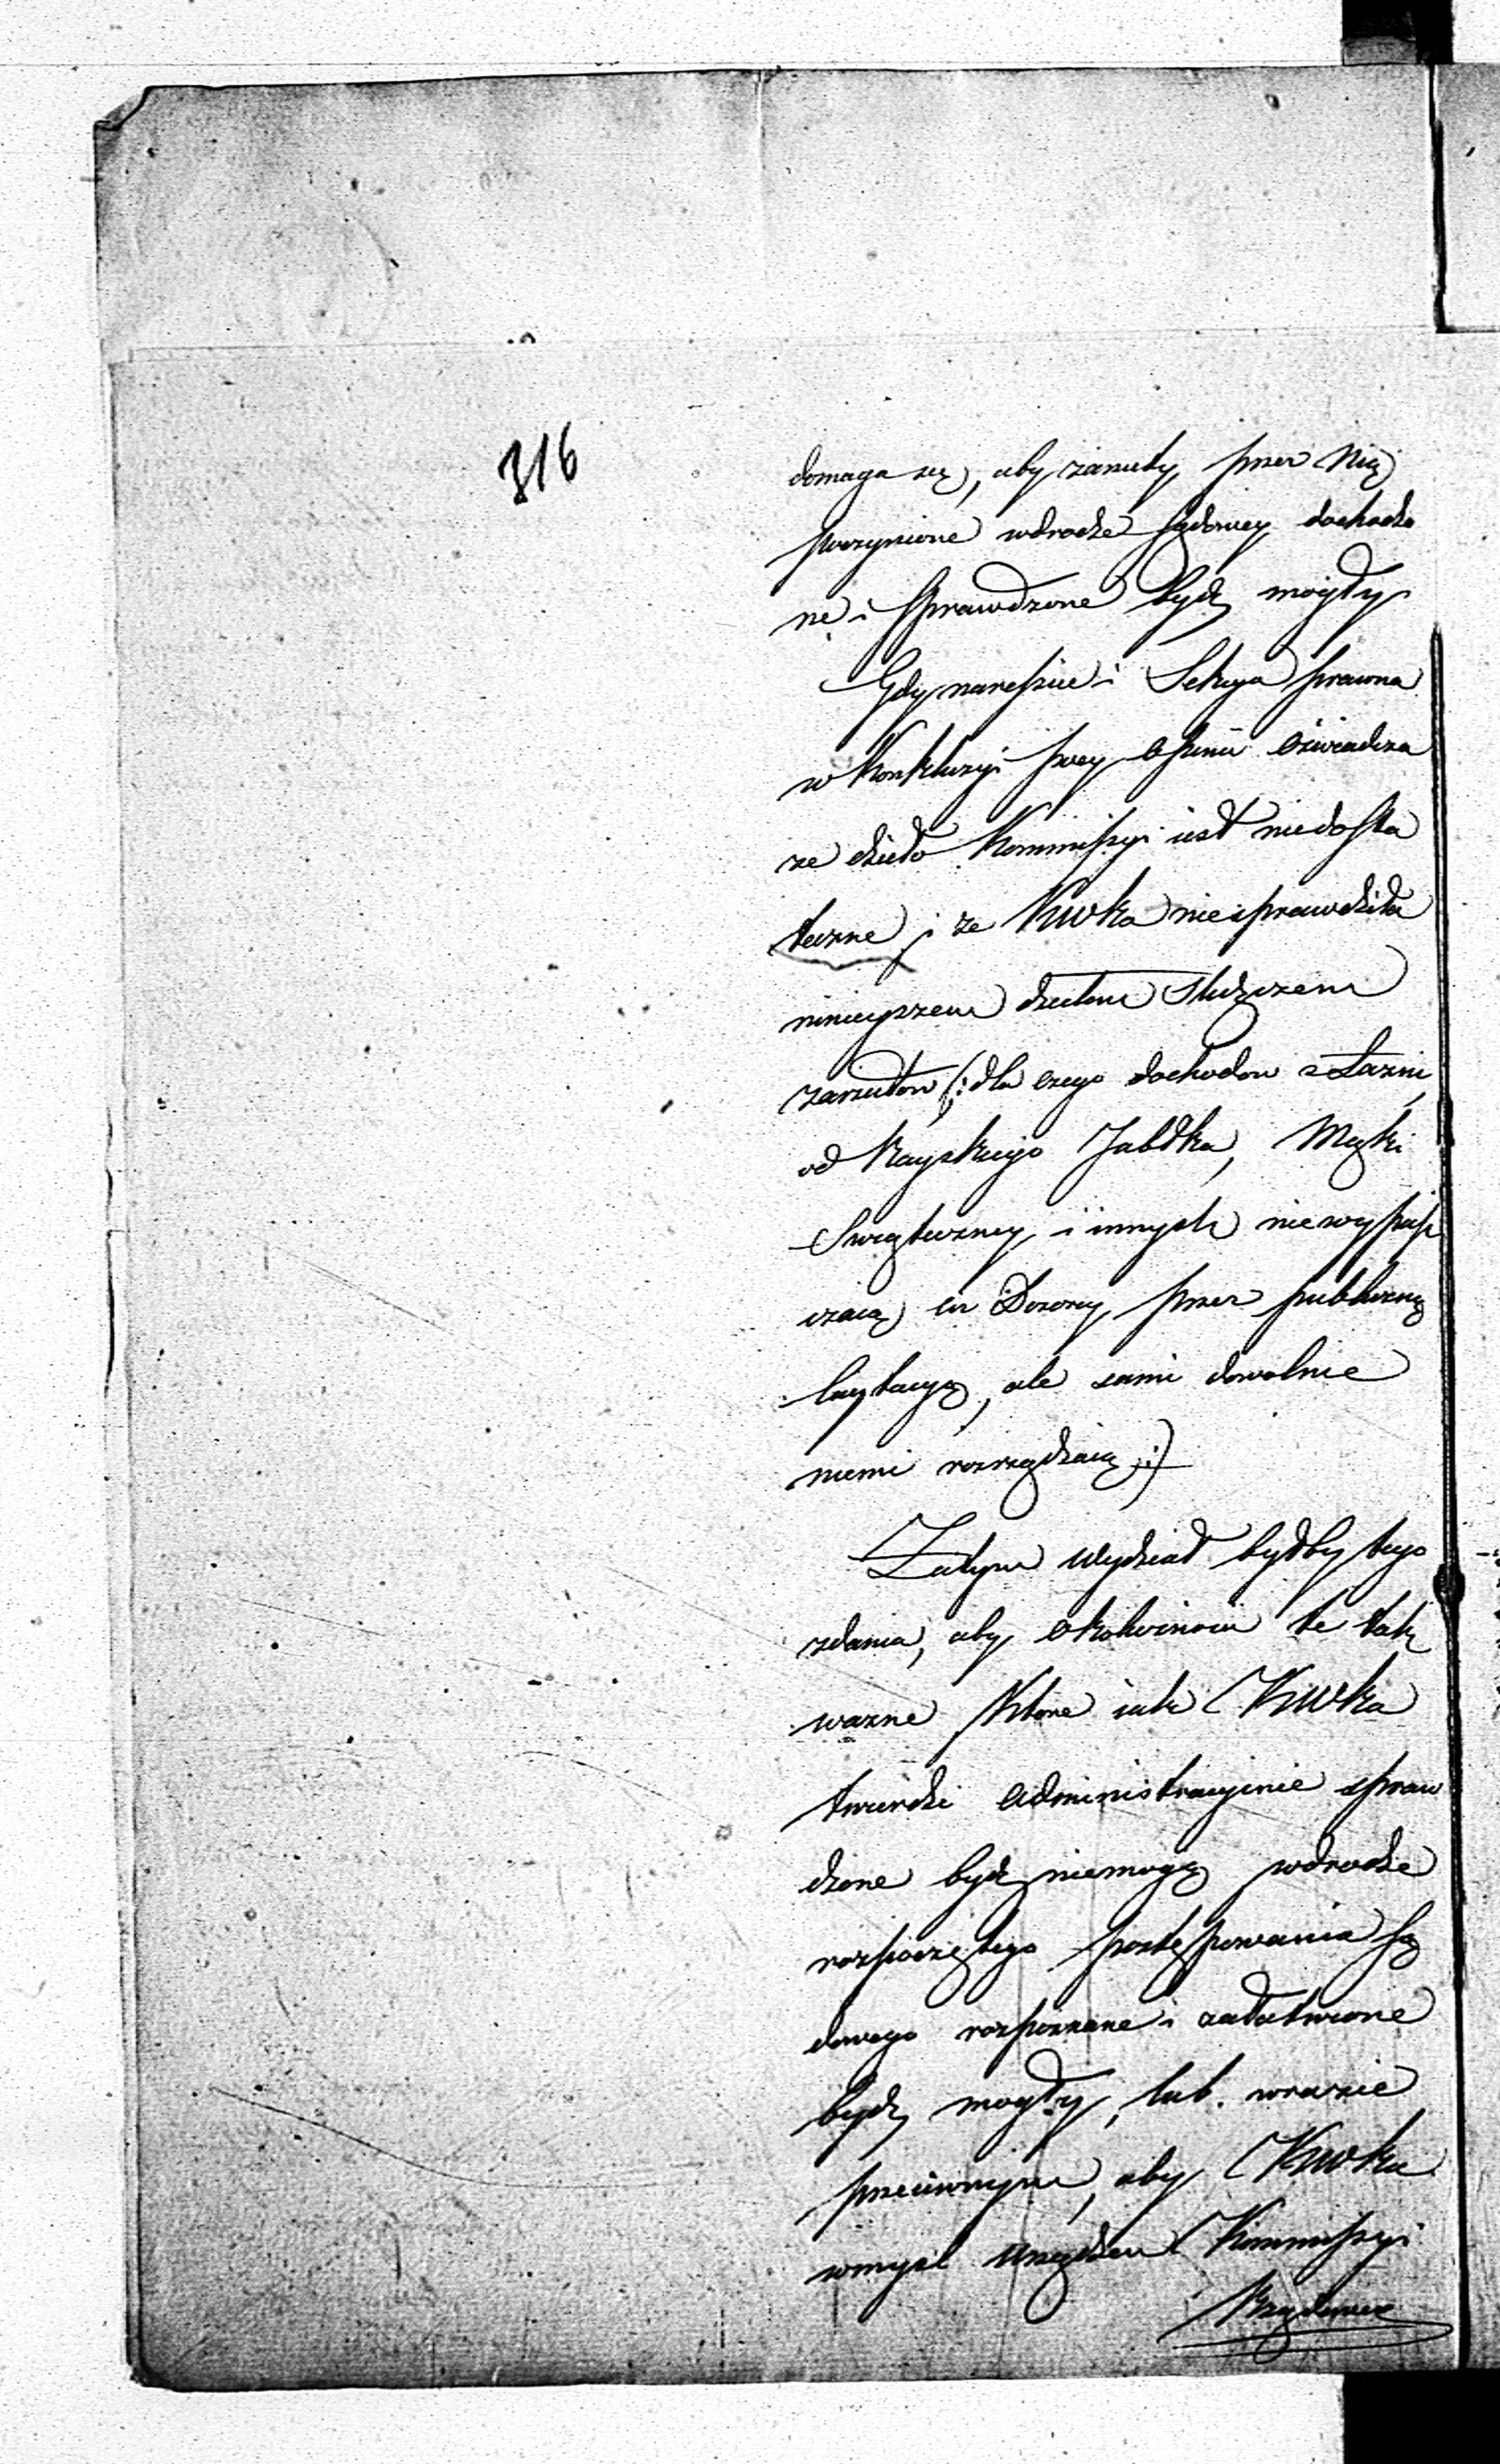 316
domaga się, aby zarzuty przez Nią
poczynione wdrodze sądowey dochodzo
ne i sprawdzone bydź mogły
Gdy nareszcie i Sekcya prawna
w Konkluzyi swey opinii oświadcza
ze dzieło Kommissyi iest niedosta
teczne i ze KWka niesprawdziła
ninieyszem dziełem Służącem
zarzutow (: dla czego dochodow z Łazni,
od Rayskiego Jabłka, Mąki
Swiąteczney i innych niewypusz
czaią Dozory przez publiczną
licytacyą, ale sami dowolnie
niemi rozrządzaią :)
Zatym Wydział byłby tego
zdania, aby okolicznosci te tak
wazne które iak KWka
twierdzi administracyinie spraw
dzone bydź niemogą wdrodze
rozpoczętego postępowania są
dowego rozpoznane i załatwione
bydź mogły, lub wrazie
przeciwnym, aby KWka
wmysl Urządzen Kommissyi
Rządowey